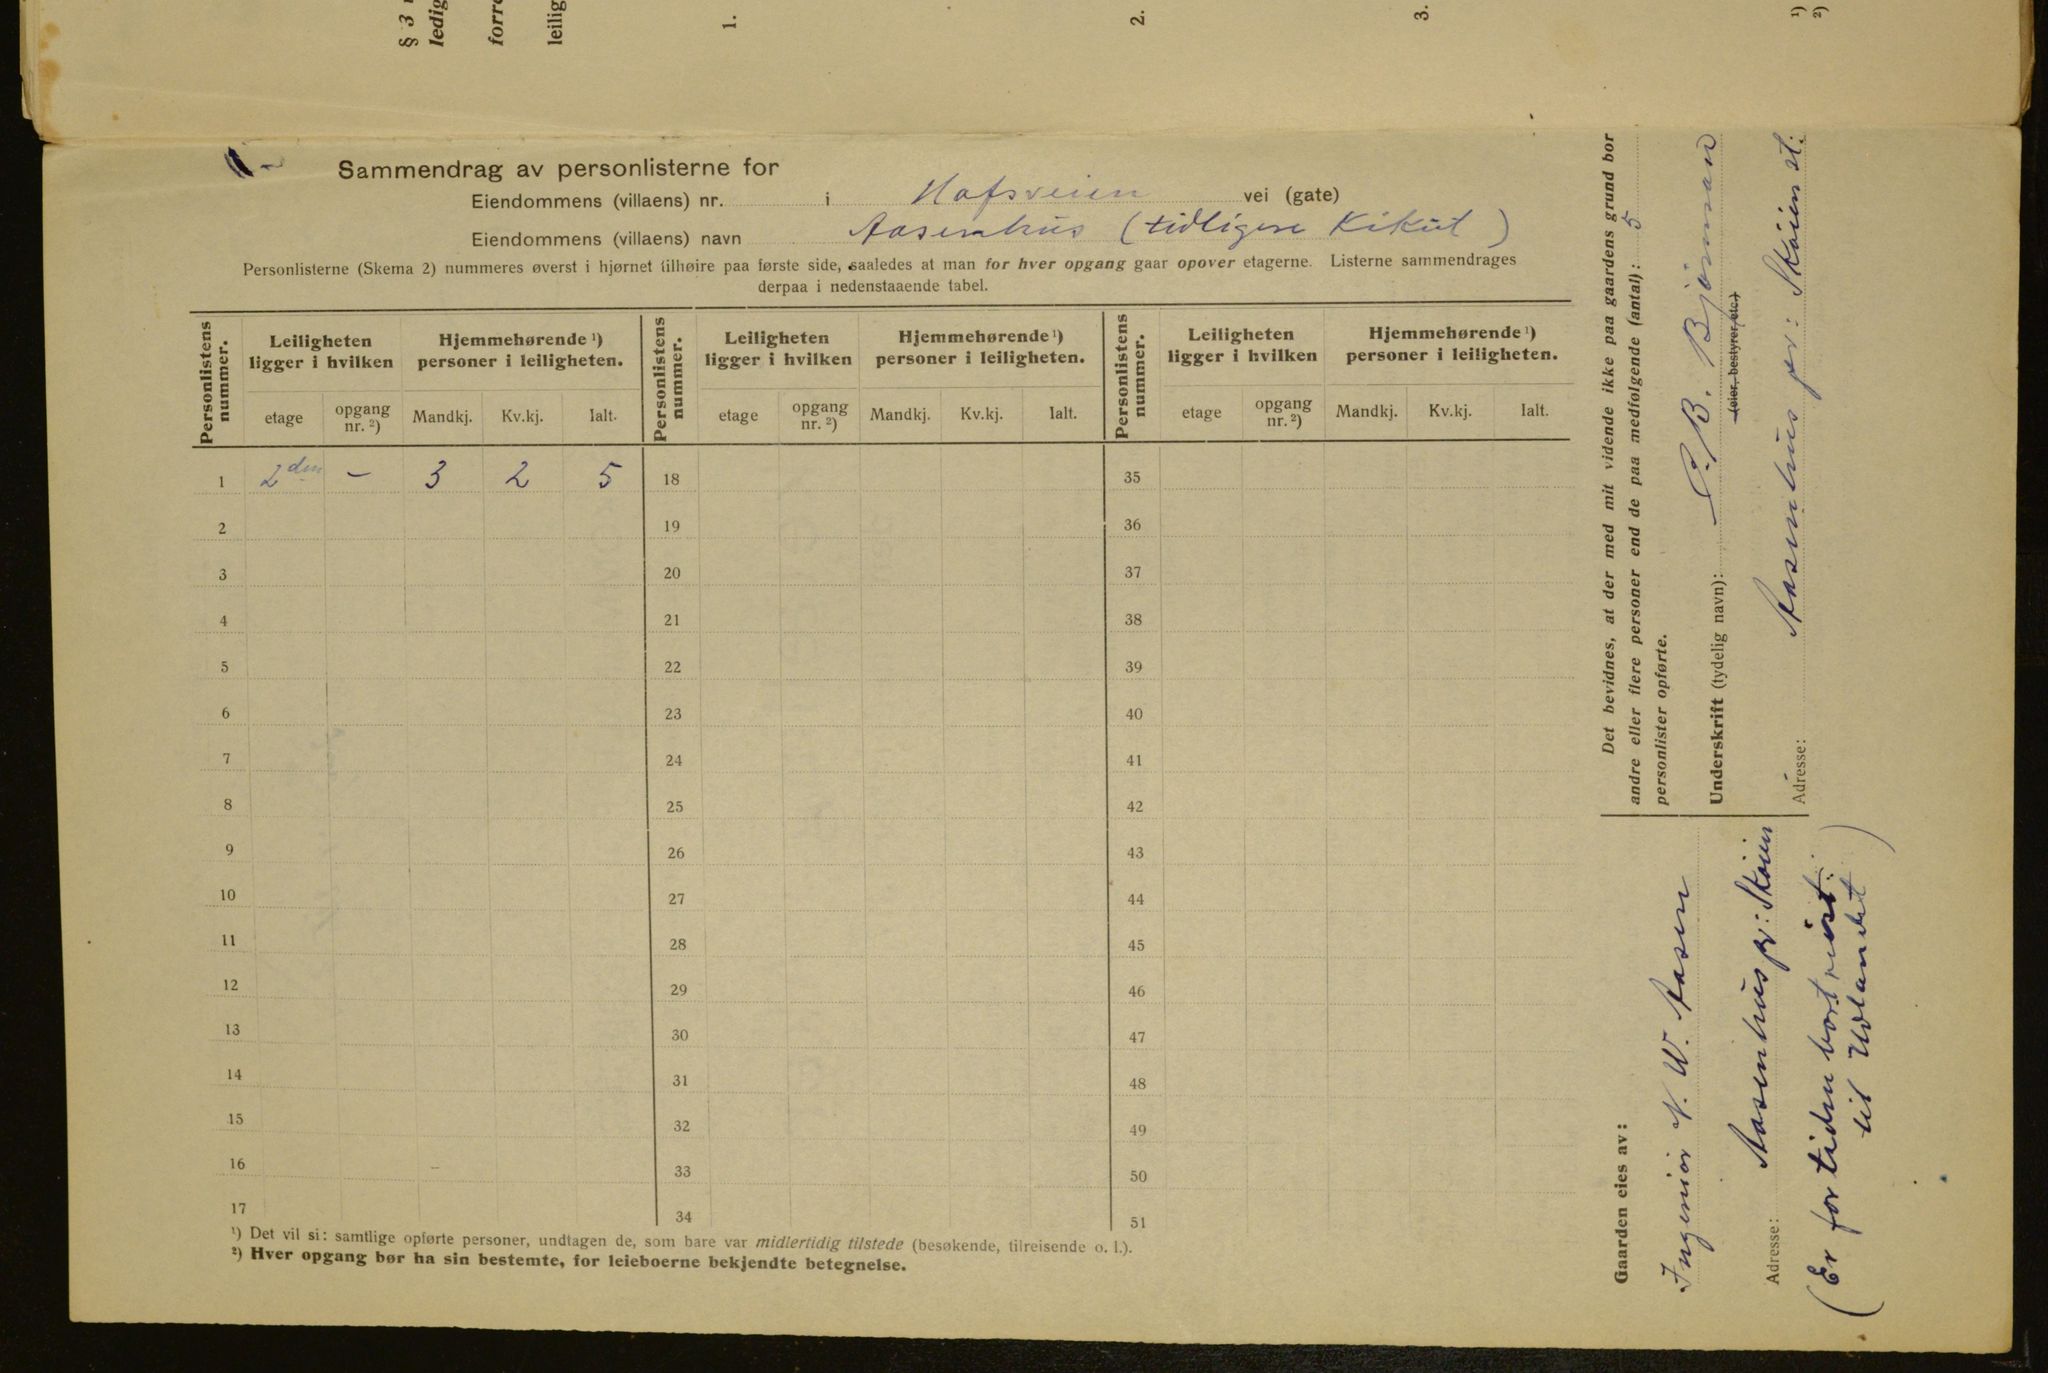 § 3
ledig
forre
leilig
1.
2.
3.
¹)
²)
Sammendrag av personlisterne for
Eiendommens (villaens) nr. i Hofsveien vei (gate)
Eiendommens (villaens) navn Aasenhus (tidligere Kikut)
Personlisterne (Skema 2) nummeres øverst i hjørnet tilhøire paa første side, saaledes at man for hver opgang gaar opover etagerne. Listerne sammendrages
derpaa i nedenstaaende tabel.
Personlistens nummer. Leiligheten ligger i hvilken Hjemmehørende ¹) personer i leiligheten. Personlistens nummer. Leiligheten ligger i hvilken Hjemmehørende ¹) personer i leiligheten. Personlistens nummer. Leiligheten ligger i hvilken Hjemmehørende ¹) personer i leiligheten.
etage opgang nr. ²) Mandkj. Kv.kj. Ialt. etage opgang nr. ²) Mandkj. Kv.kj. Ialt. etage opgang nr. ²) Mandkj. Kv.kj. Ialt.
1 2den – 3 2 5 18 35
2 19 36
3 20 37
4 21 38
5 22 39
6 23 40
7 24 41
8 25 42
9 26 43
10 27 44
11 28 45
12 29 46
13 30 47
14 31 48
15 32 49
16 33 50
17 34 51
¹) Det vil si: samtlige opførte personer, undtagen de, som bare var midlertidig tilstede (besøkende, tilreisende o. l.).
²) Hver opgang bør ha sin bestemte, for leieboerne bekjendte betegnelse.
Det bevidnes, at der med mit vidende ikke paa gaardens grund bor
andre eller flere personer end de paa medfølgende (antal): 5
personlister opførte.
Underskrift (tydelig navn): C. B. Björnman
(eier, bestyrer, etc.)
Adresse: Aasenhus pr: Skøien st:
Gaarden eies av:
Ingeniør N. W. Aasen
Adresse: Aasenhus pr: Skøien
(Er for tiden bortreist
til Udlandet)